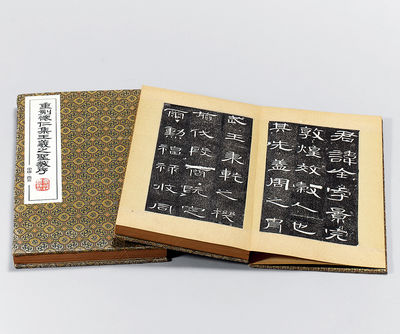 重刻懷仁集王羲之聖教序
君諱全字景完
敦煌效穀人也
其先蓋周之胄
武王秉乾之機
翦伐殷商既定
爾勳福祿攸同